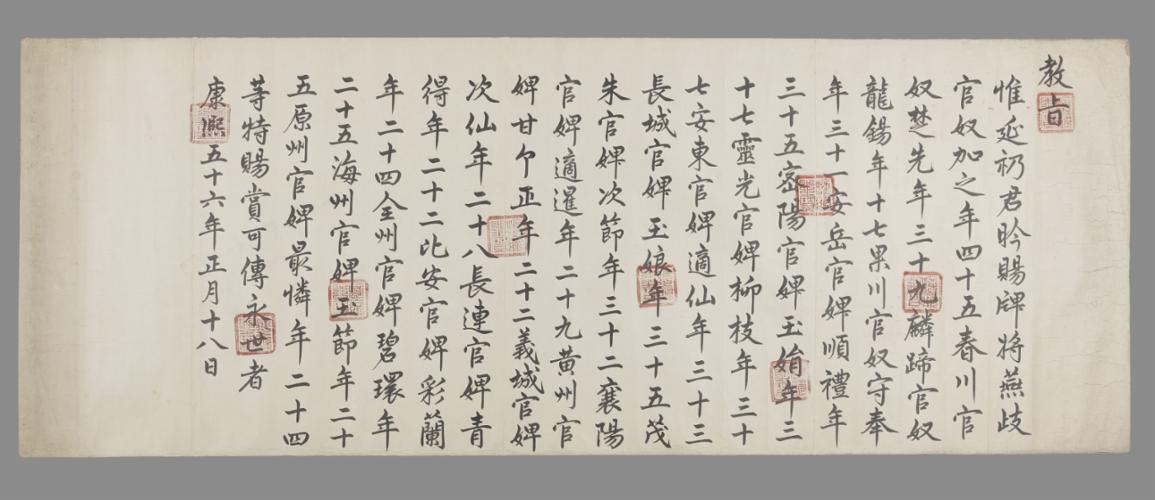 教旨
惟延礽君昑賜牌將燕歧
官奴加之年四十五春川官
奴楚先年三十九麟蹄官奴
龍錫年十七果川官奴守奉
年三十一安岳官婢順禮年
三十五密陽官婢玉娟年三
十七靈光官婢柳枝年三十
七安東官婢適仙年三十三
長城官婢玉娘年三十五茂
朱官婢次節年三十二襄陽
官婢適暹年二十九黃州官
婢甘尒正年二十二義城官婢
次仙年二十八長連官婢青
得年二十二比安官婢彩蘭
年二十四全州官婢碧環年
二十五海州官婢玉節年二十
五原州官婢最憐年二十四
等特賜賞可傳永世者
康熙五十六年正月十八日